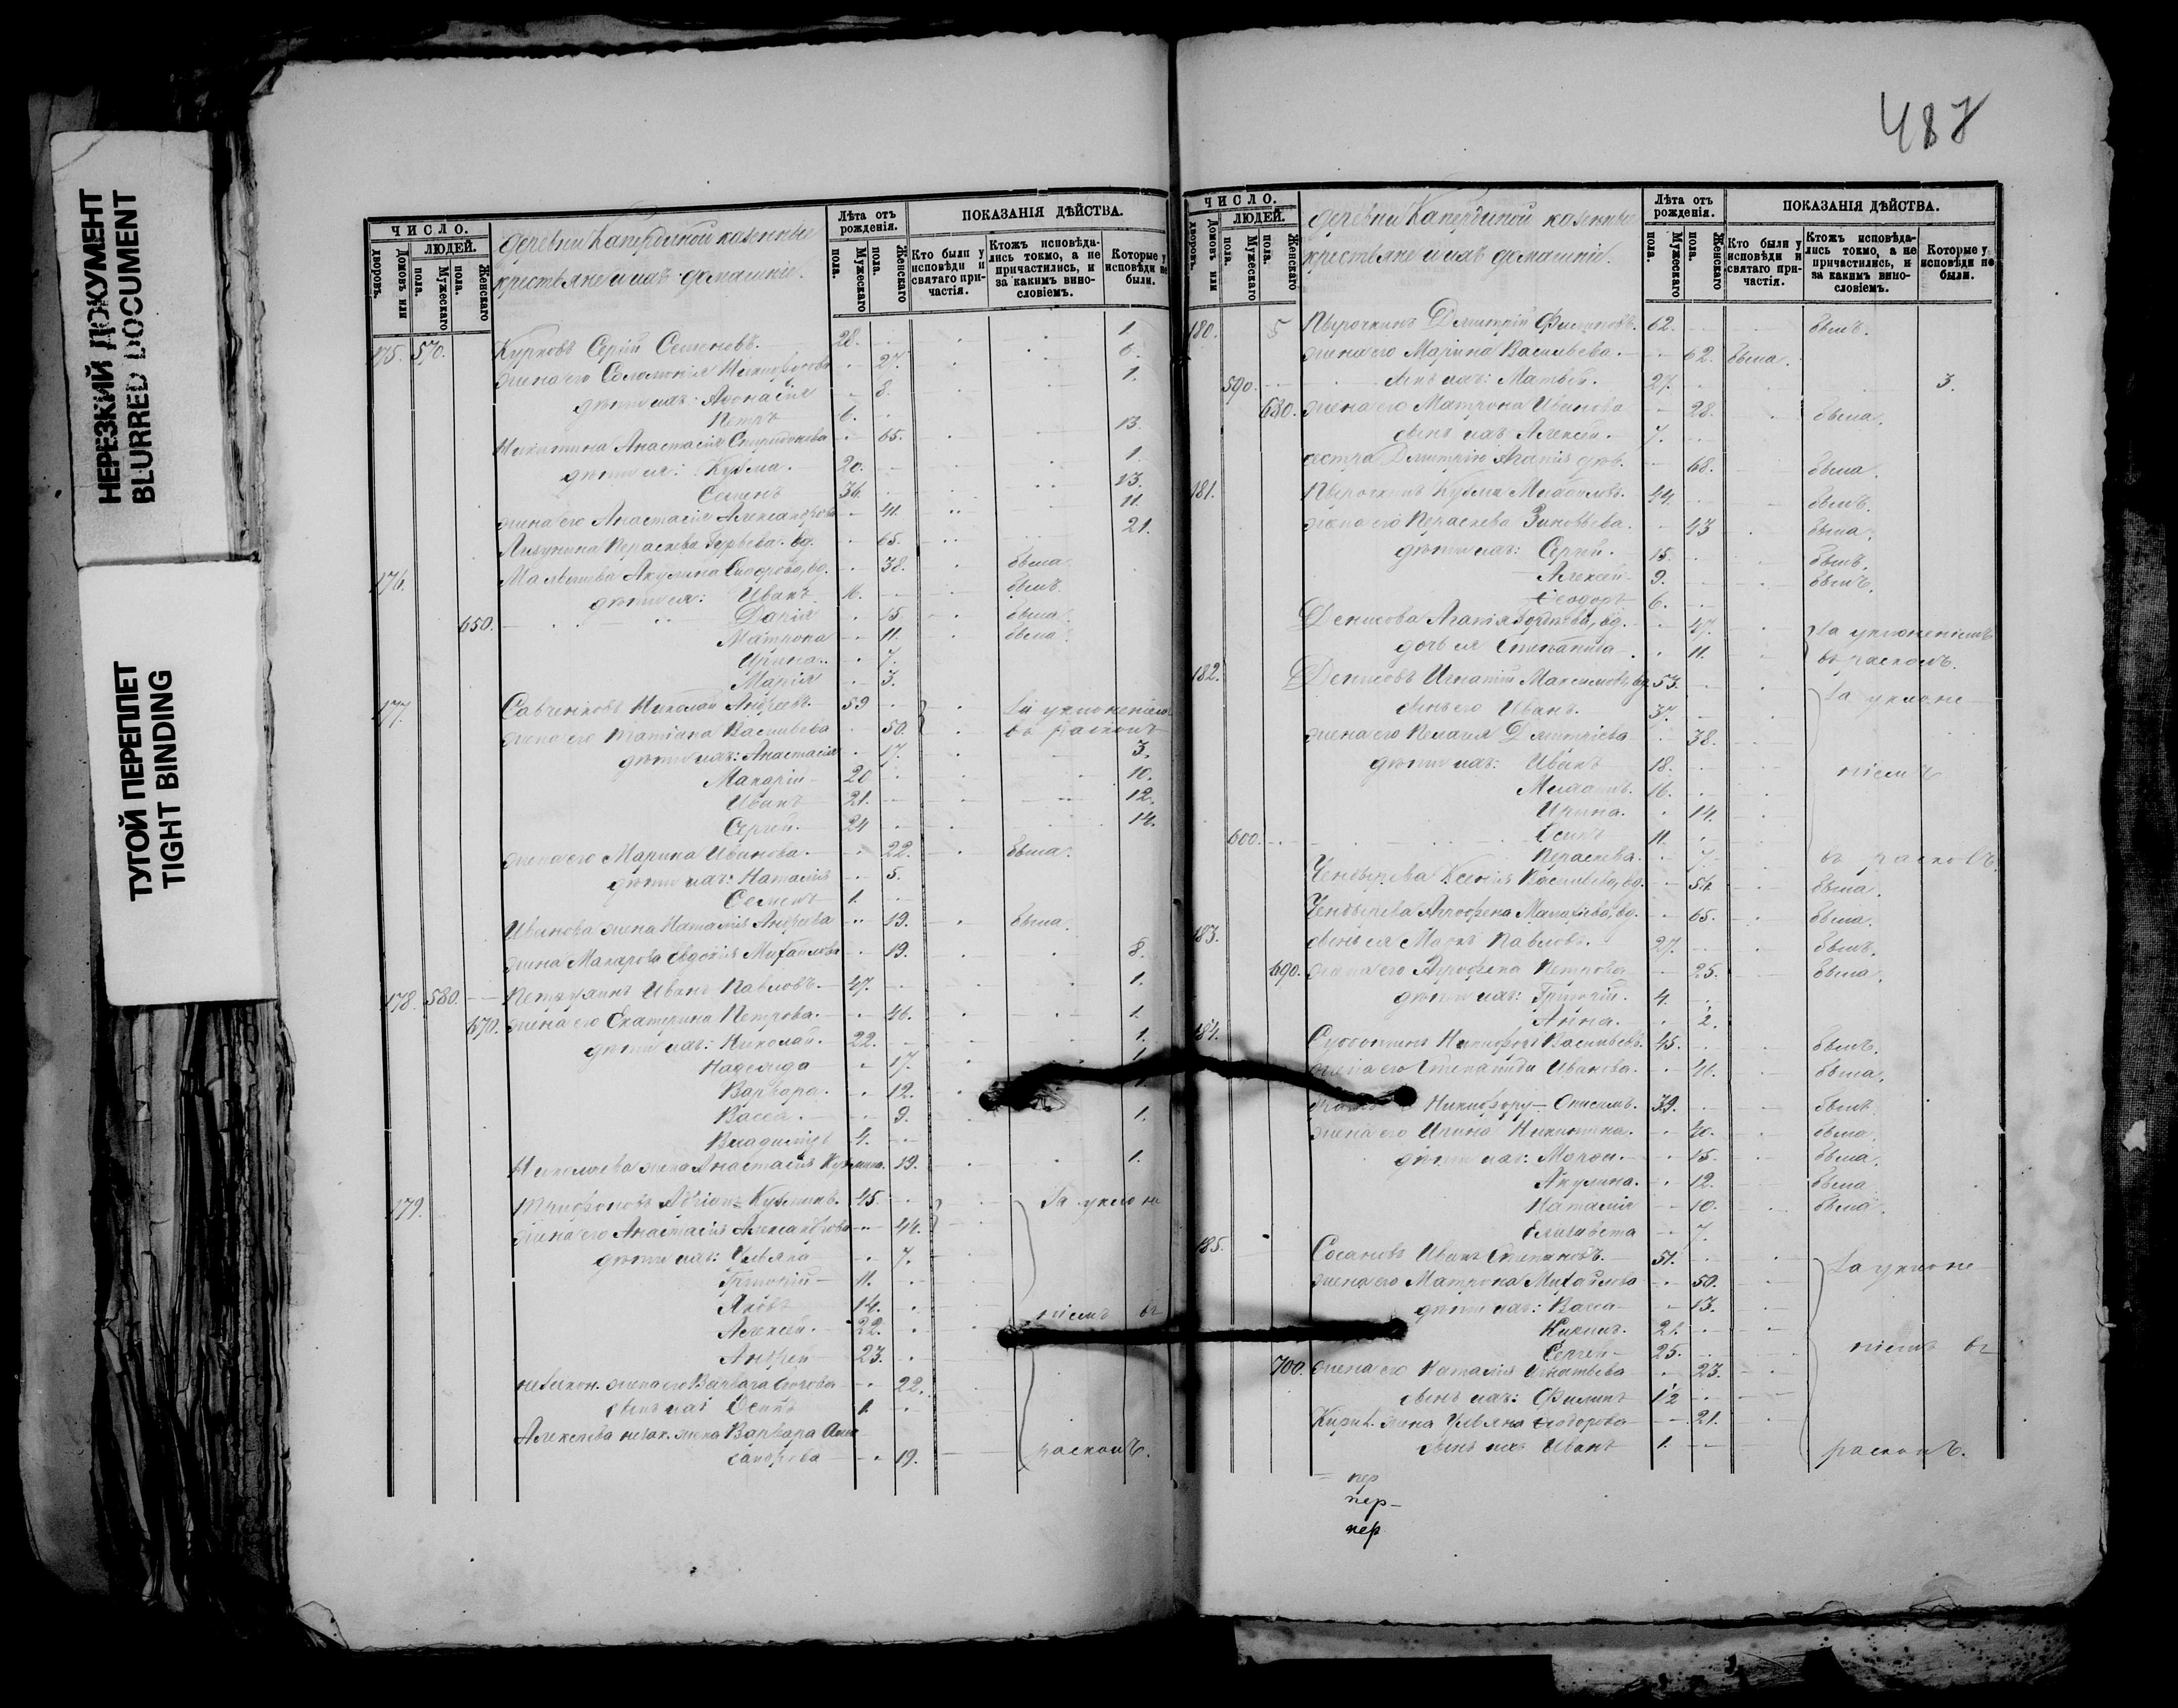 487
НЕРЕЗКИЙ ДОКУМЕНТ
BLURRED DOCUMENT
ТУГОЙ ПЕРЕПЛЕТ
TIGHT BINDING
ЧИСЛО.
ЛЮДЕЙ.
Домовъ или дворовъ.
Мужескаго пола.
Женскаго пола.
деревни казенные
крестьяне и ихъ домашніе.
Лѣта отъ рожденія.
Мужескаго пола.
Женскаго пола.
ПОКАЗАНІЯ ДѢЙСТВА.
Кто были у исповѣди и святаго причастія.
Ктожъ исповѣдались токмо, а не причастились, и за какимъ винословіемъ.
Которые у исповѣди не были.
175. 570. Курковъ Сергій Семеновъ. 28. 1.
жена его Соломонія 27.
дѣти ихъ: Афонасія 8. 1.
Петръ
Никитина Анастасія Спиридонова 65. 13.
дѣти ея: Кузьма. 20. 1.
Семенъ 36. 13.
жена его Анастасія Александрова 41. 11.
Пераскева вд. 65. 21.
176. Малышева Акулина вд. 38. была
дѣти ея: Иванъ былъ
650. Дарія 15 была
Матрона 11. была
Ирина 7.
Марія 3.
177. Николай Андреевъ. 59 За уклоненіемъ
жена его Татіана Васильева 50. въ расколъ
дѣти ихъ: Анастасія 17. 3.
Макарій 20 10.
Иванъ 21. 12.
Сергій 24 14.
жена его Марина Иванова. 22. была.
дѣти ихъ: Наталія 5.
Семенъ 1.
Иванова жена Наталія Андреева 19. была.
жена Макарова Евдокія Михайлова 19. 8.
178. 580. Иванъ Павловъ. 47. 1.
670. жена его Екатерина Петрова. 46. 1.
дѣти ихъ: Николай. 22. 1.
Надежда 17.
Варвара. 12.
Васса. 9. 1.
Владиміръ 4.
Николаева жена Анастасія 19. 1.
179. Трифоновъ Адріанъ Кузьминъ. 45. За уклоне
жена его Анастасія Александрова 44.
дѣти ихъ: Ульяна 7.
Григорій 11.
Яковъ 14. ніемъ въ
Алексѣй. 22.
Андрей 23.
незакон. жена его Варвара 22.
сынъ ихъ Осипъ 1.
Алексѣева незак. жена Варвара Алек
сандрова 19. расколъ.
ЧИСЛО.
ЛЮДЕЙ.
Домовъ или дворовъ.
Мужескаго пола.
Женскаго пола.
деревни казенные
крестьяне и ихъ домашніе.
Лѣта отъ рожденія.
Мужескаго пола.
Женскаго пола.
ПОКАЗАНІЯ ДѢЙСТВА.
Кто были у исповѣди и святаго причастія.
Ктожъ исповѣдались токмо, а не причастились, и за какимъ винословіемъ.
Которые у исповѣди не были.
180. 5 Дмитрій Филиповъ. 62. былъ.
жена его Марина Васильева. 62. была.
590. сынъ ихъ: Матвей. 27. 3.
680. жена его Матрона Иванова 28. была.
сынъ ихъ Алексѣй. 7.
сестра Дмитрія Агапія дѣв. 68. была.
181. Кузьма Михайловъ. 44. былъ.
жена его Пераскева Зиновьева. 43 была.
дѣти ихъ: Сергѣй. 15. былъ.
Алексѣй 9. былъ.
Ѳеодоръ 6.
Денисова вд. 47. За уклоненіемъ
дочь ея Степанида 11. въ расколъ.
182. Денисовъ Игнатій Максимовъ, вд. 53. За уклоне
сынъ его Иванъ. 37.
жена его Пелагія Дмитріева 38.
дѣти ихъ: Иванъ 18. ніемъ
Михаилъ. 16.
Ирина. 14.
600. Осипъ 11
Пераскева. 7. въ расколъ
Ксенія Васильева, вд. 54. была.
Агрофена вд. 65. была.
183. сынъ ея Маркъ Павловъ. 27. былъ.
690. жена его Агрофена Петрова 25. была.
дѣти ихъ: Григорій. 4.
Анна. 2.
184. Никифоръ Васильевъ. 45. былъ.
жена его Степанида Иванова. 46. была.
Никифору Онисимъ. 39. былъ.
жена его Ирина Никитина. 40. была.
дѣти ихъ: 15. была.
Акулина. 12. была
Наталія 10. была.
Елизавета 7.
185. Иванъ Степановъ. 51. За уклоне
жена его Матрона Михайлова 50.
дѣти ихъ: Васса 13.
21.
Сергѣй 25. ніемъ въ
700. жена его Наталія Игнатьева 23.
сынъ ихъ: Филипъ 1/2
жена Ульяна Ѳеодорова 21.
сынъ ихъ Иванъ 1. расколъ.
пер
пер
пер